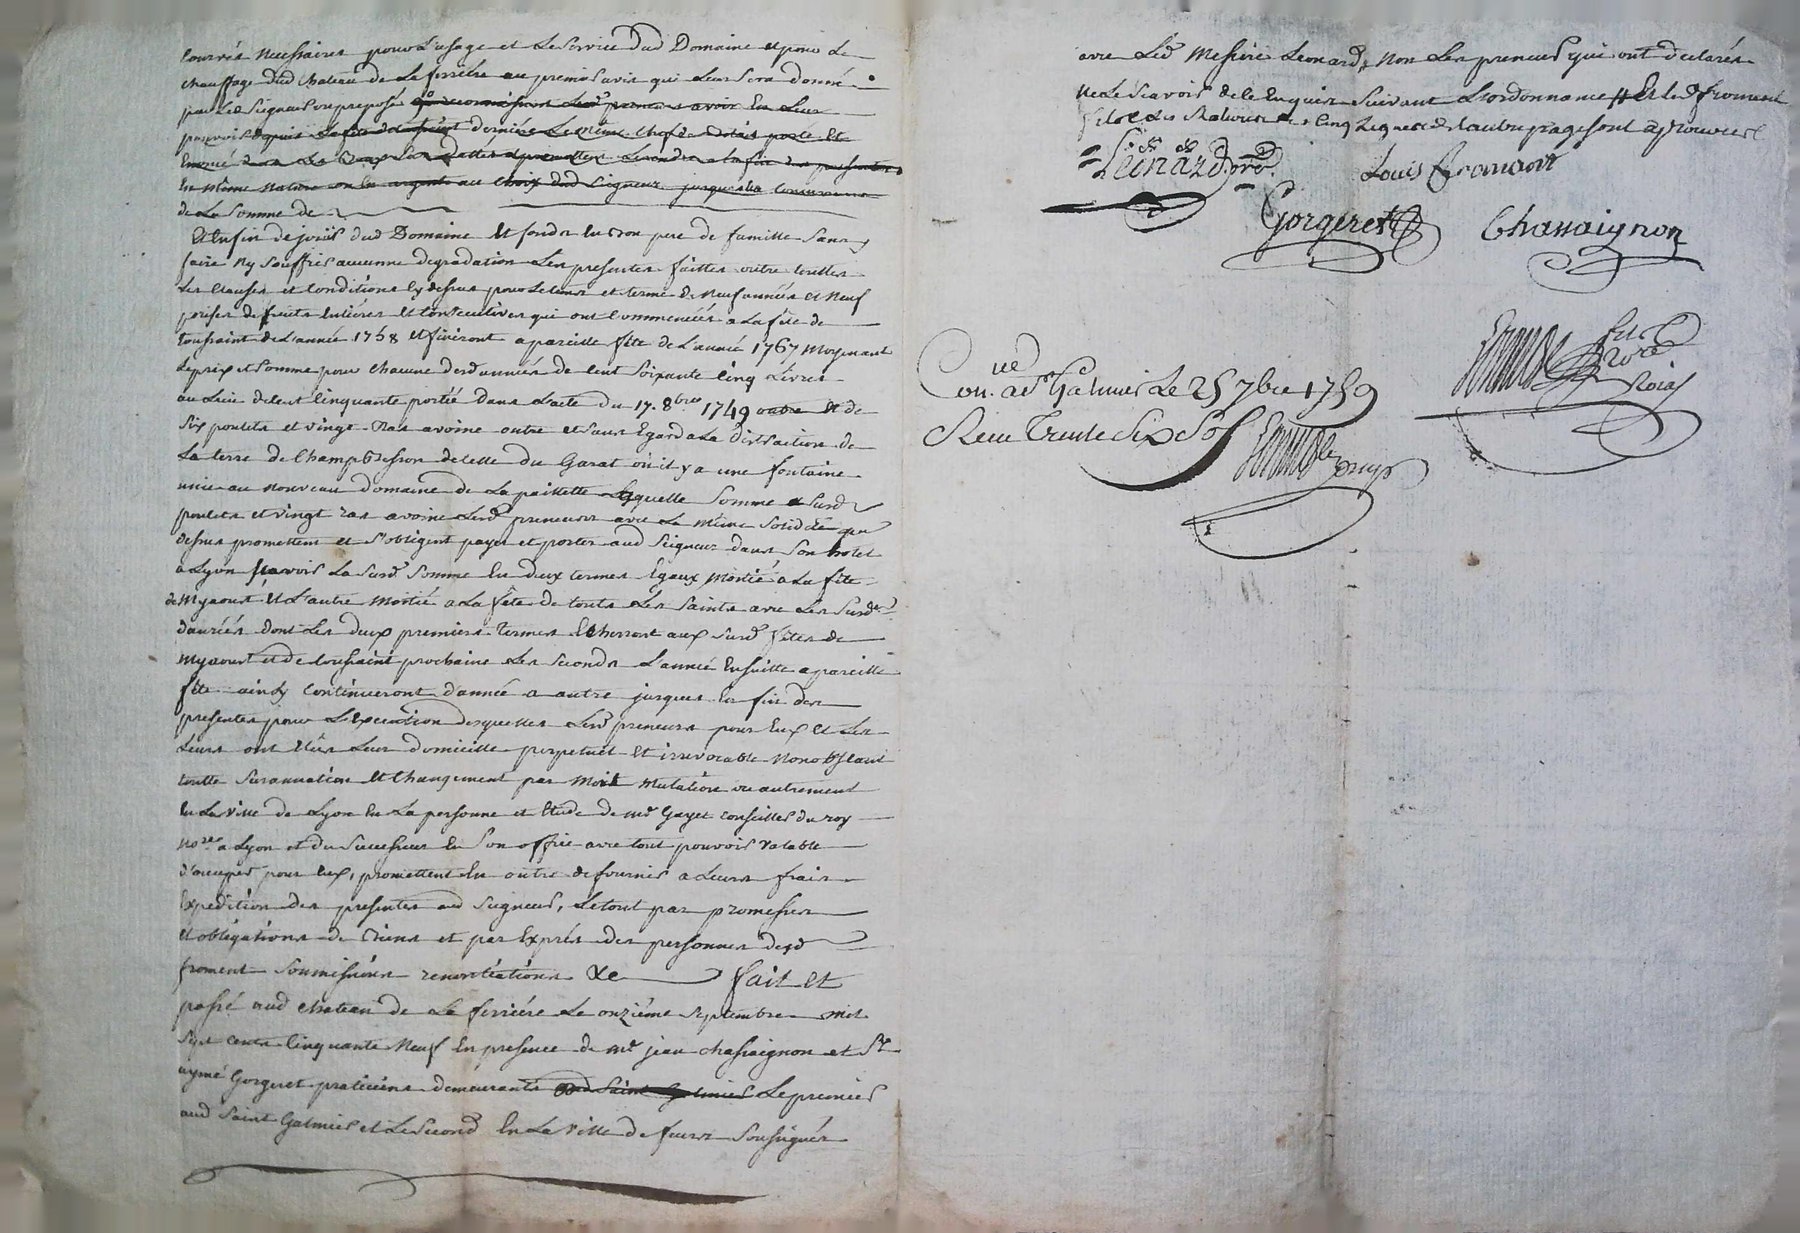 Courrés Necessaires pour L'usage et Le Service dud Domaine et pour Le
chauffage dud chateau de La ferriére au premier avis qui Leur Sera donné
par Led Seigneur ou preposé reconnoissent Lesd preneurs avoir En Leur
pouvoir depuis La fête derniére Le même
En même Nature ou En argent au Choix dud Seigneur jusques a la Concurrance
de La Somme de
Et Enfin de jouir dud Domaine Et fonds En bon pere de famille Sans y
faire Ny Souffrir aucunne degradation Les presentes faittes outre touttes
Les Clauses et Conditions Cy dessus pour Le tems et terme de Neuf années et Neuf
prises de fruits Entiéres Et Consecutives qui ont Commencées a La fête de
toussaint de L'année 1758 Et finiront a pareille fête de L'année 1767 Moyenant
Le prix et Somme pour chacune desd années de Cent Soixante Cinq Livres
au Lieu de Cent Cinquante portée dans L'acte du 17. 8bre 1749 outre Et de
Six poulets et vingt Ras avoine outre et Sans Egard a La distraction de
La terre de Champ de celle du Garat où il y a une fontaine
unie au nouveau domaine de La paillette Laquelle Somme Susd
poulets et vingt ras avoine Lesd preneurs avec La même Solidité que
dessus promettent et S'obligent payer et porter aud Seigneur dans Son hotel
a Lyon Scavoir La Susd Somme En deux termes Egaux Moitié a La fête
de Myaoust Et L'autre Moitié a La fête de touts Les Saints avec Les Susd
danrées dont Les deux premiers Termes Echerront aux Susd fêtes de
Myaoust et de toussaint prochaine Les Seconds L'année Ensuitte a pareille
fête ainsy Continueront d'année a autre jusques En fin des
presentes pour L'Execution desquelles Lesd preneurs pour Eux et Les
Leurs ont Elûs Leur Domicille perpetuel Et irrevocable Nonobstant
toutte Surannation Et Changement par Mort Mutation ou autrement
En La ville de Lyon En La personne et Etude de Mr Gayet Conseiller du roy
Nore a Lyon et du Successeur En Son office avec tout pouvoir Valable
d'occuper pour Eux, promettent En outre de fournir a Leurs frais
Expedition des presentes aud Seigneur, Le tout par promesses
Et obligations de Biens et par Exprés des personnes desd
froment Soumissions renontiations &c fait Et
passé aud chateau de La ferriére Le onziéme Septembre Mil
Sept Cents Cinquante Neuf En presence de Mr jean chassaignon et Sr
aymé Gorgeret praticiens demeurants aud Saint Galmier Le premier
aud Saint Galmier et Le Second En La ville de feurs Soussignés
avec Led Messire Leonard, Non Les preneurs qui ont declarés
Ne Le Scavoir de ce Enquis Suivant L'ordonnance Et Led froment
fils Les Ratures de Cinq Lignes de L'autre page sont aprouvées
Leonard
Louis froment
Gorgeret
Chassaignon
Nore
Roial
Con. a St Galmier Le 25 7bre 1759
Recu Trente Six Sols